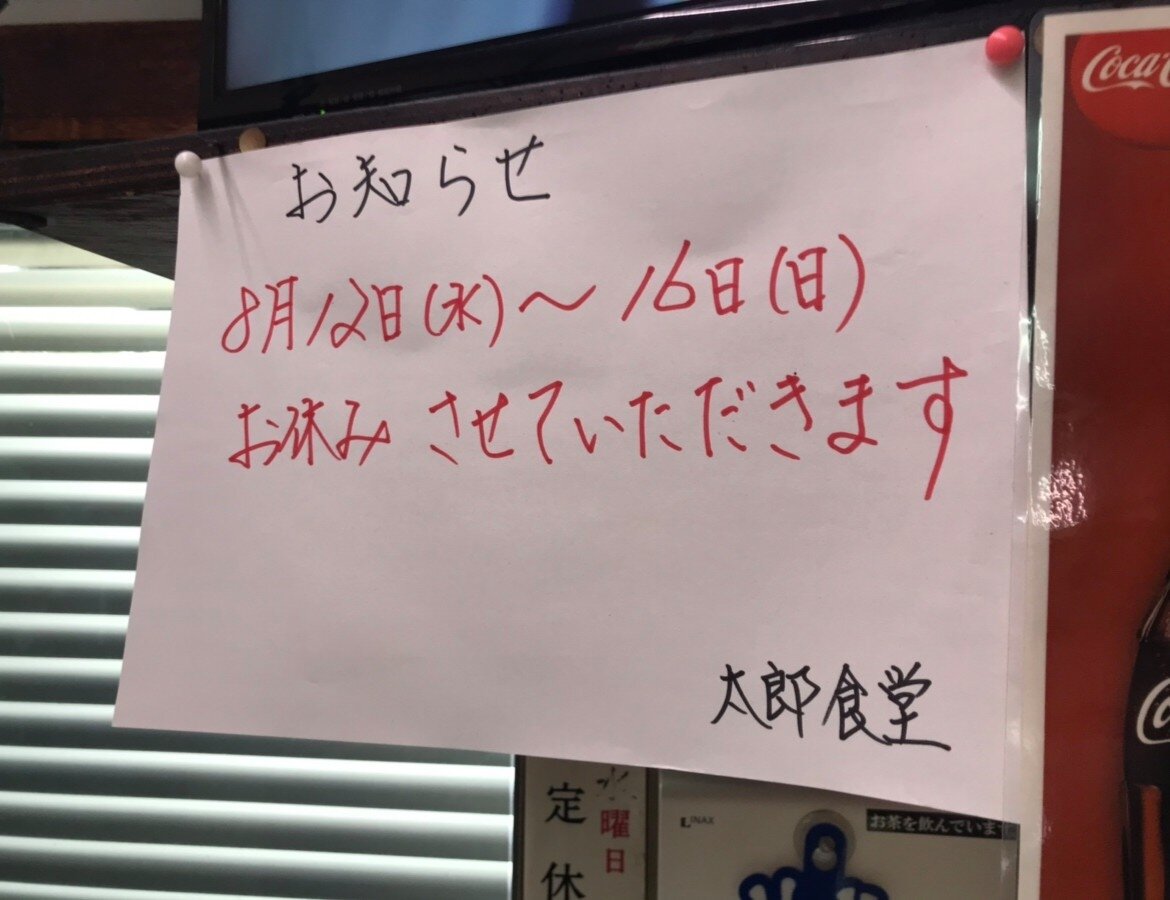 お知らせ
8月12日(水)〜16日(日)
お休みさせていただきます
太郎食堂
Coca
定休
水曜日
INAX
お茶を飲んでいま